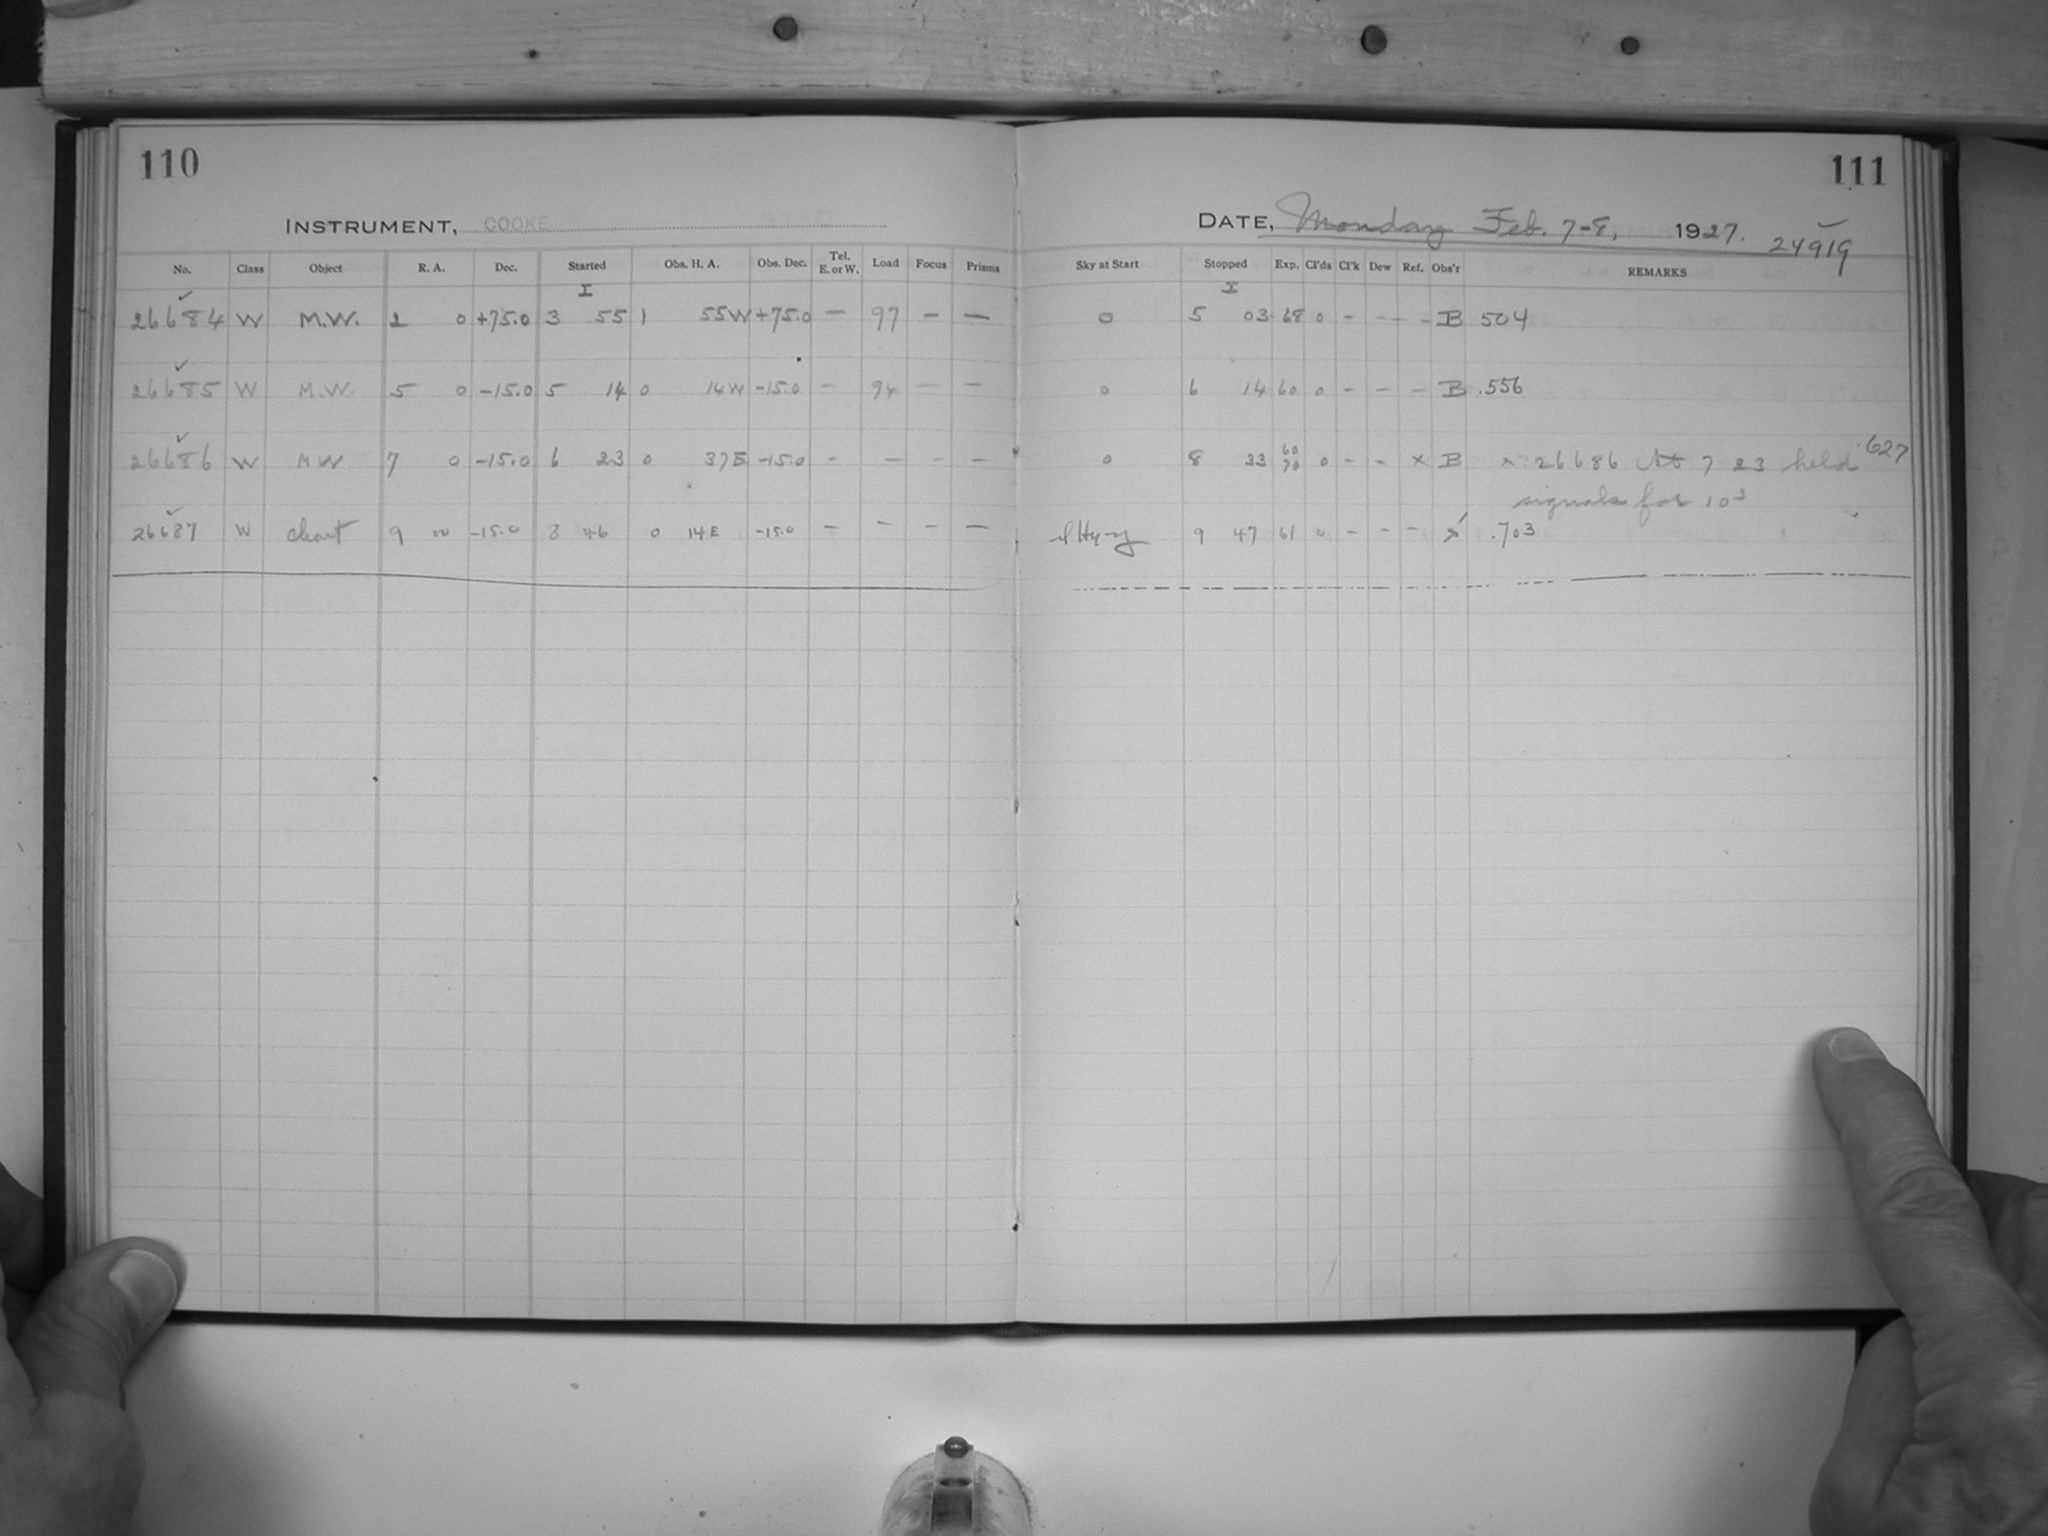 110
111
INSTRUMENT, COOKE
DATE, Monday Feb. 7-8, 1927. 24919
No. Class Object R. A. Dec. Started Obs. H. A. Obs. Dec. Tel. E. or W. Load Focus Prisms Sky at Start Stopped Exp. Cl'ds Cl'k Dew Ref. Obs'r REMARKS
I I
26684 W M.W. 2 0 +75.0 3 55 1 55W +75.0 — 97 — — 0 5 03 68 0 - - - B 504
26685 W M.W. 5 0 -15.0 5 14 0 14W -15.0 - 94 — — 0 6 14 60 0 - - - B .556
26686 W MW 7 0 -15.0 6 23 0 37E -15.0 - — - - 0 8 33 60 70 0 - - x B x 26686 At 7 23 held .627
signals for 10s
26687 W chart 9 00 -15.0 8 46 0 14E -15.0 - - - - 9 47 61 0 - - - .703